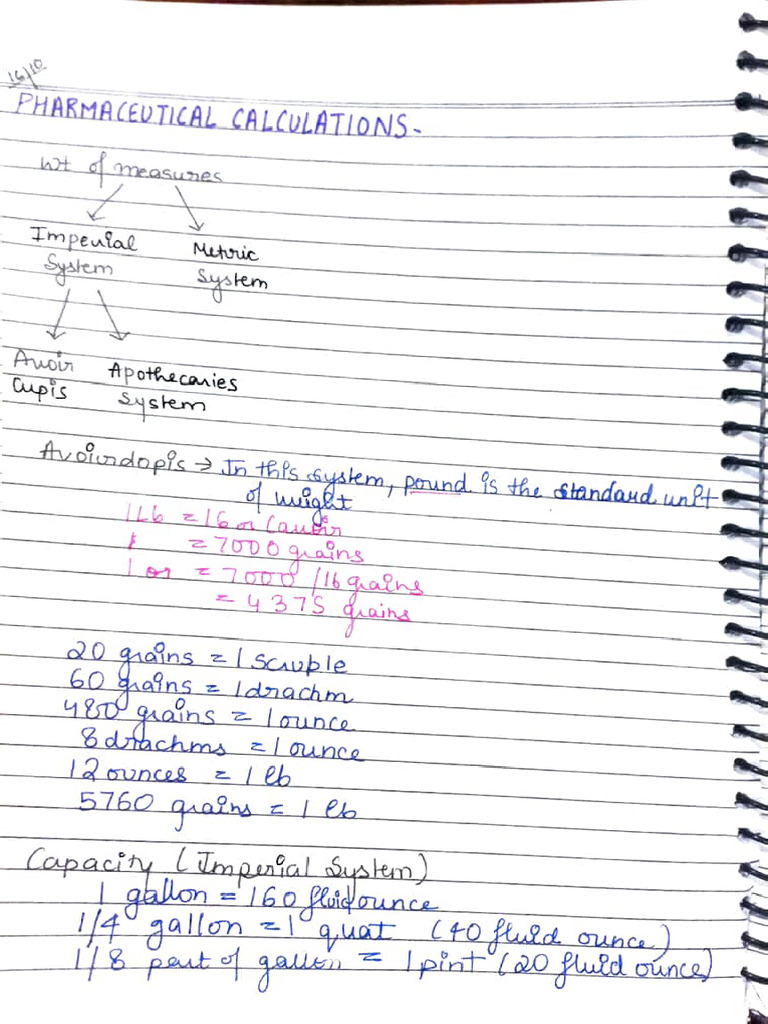 16/10
PHARMACEUTICAL CALCULATIONS-
Wt of measures
Imperial Metric
System System
Avoir Apothecaries
Cupis System
Avoirdopis → In this system, pound is the standard unit
of weight
1 Lb = 16 oz (avoir
= 7000 grains
1 oz = 7000 /16 grains
= 4375 grains
20 grains = 1 scruple
60 grains = 1 drachm
480 grains = 1 ounce
8 drachms = 1 ounce
12 ounces = 1 lb
5760 grains = 1 lb
Capacity (Imperial System)
1 gallon = 160 fluid ounce
1/4 gallon = 1 quat (40 fluid ounce)
1/8 part of gallon = 1 pint (20 fluid ounce)